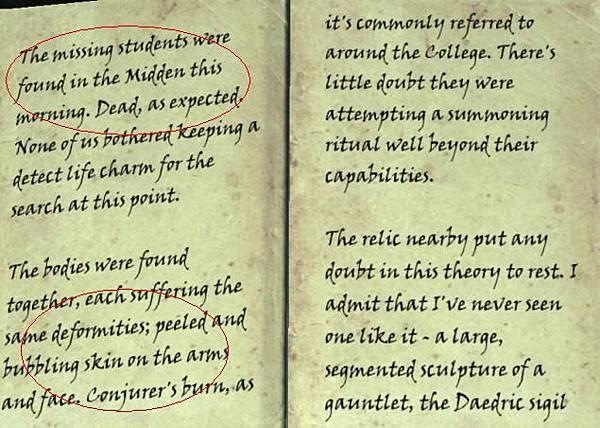 The missing students were
found in the Midden this
morning. Dead, as expected.
None of us bothered keeping a
detect life charm for the
search at this point.
The bodies were found
together, each suffering the
same deformities; peeled and
bubbling skin on the arms
and face. Conjurer's burn, as
it's commonly referred to
around the College. There's
little doubt they were
attempting a summoning
ritual well beyond their
capabilities.
The relic nearby put any
doubt in this theory to rest. I
admit that I've never seen
one like it - a large,
segmented sculpture of a
gauntlet, the Daedric sigil